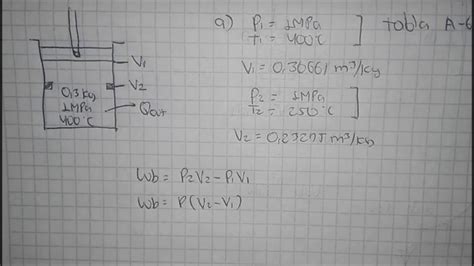 V₁
V₂
0,3 Kg
1MPa
400°C
Qout
a) P₁ = 1MPa
T₁ = 400°C
] tabla A-6
V₁ = 0,30661 m³/Kg
P₂ = 1MPa
T₂ = 250°C
]
V₂ = 0,23275 m³/Kg
Wb = P₂V₂ - P₁V₁
Wb = P(V₂-V₁)